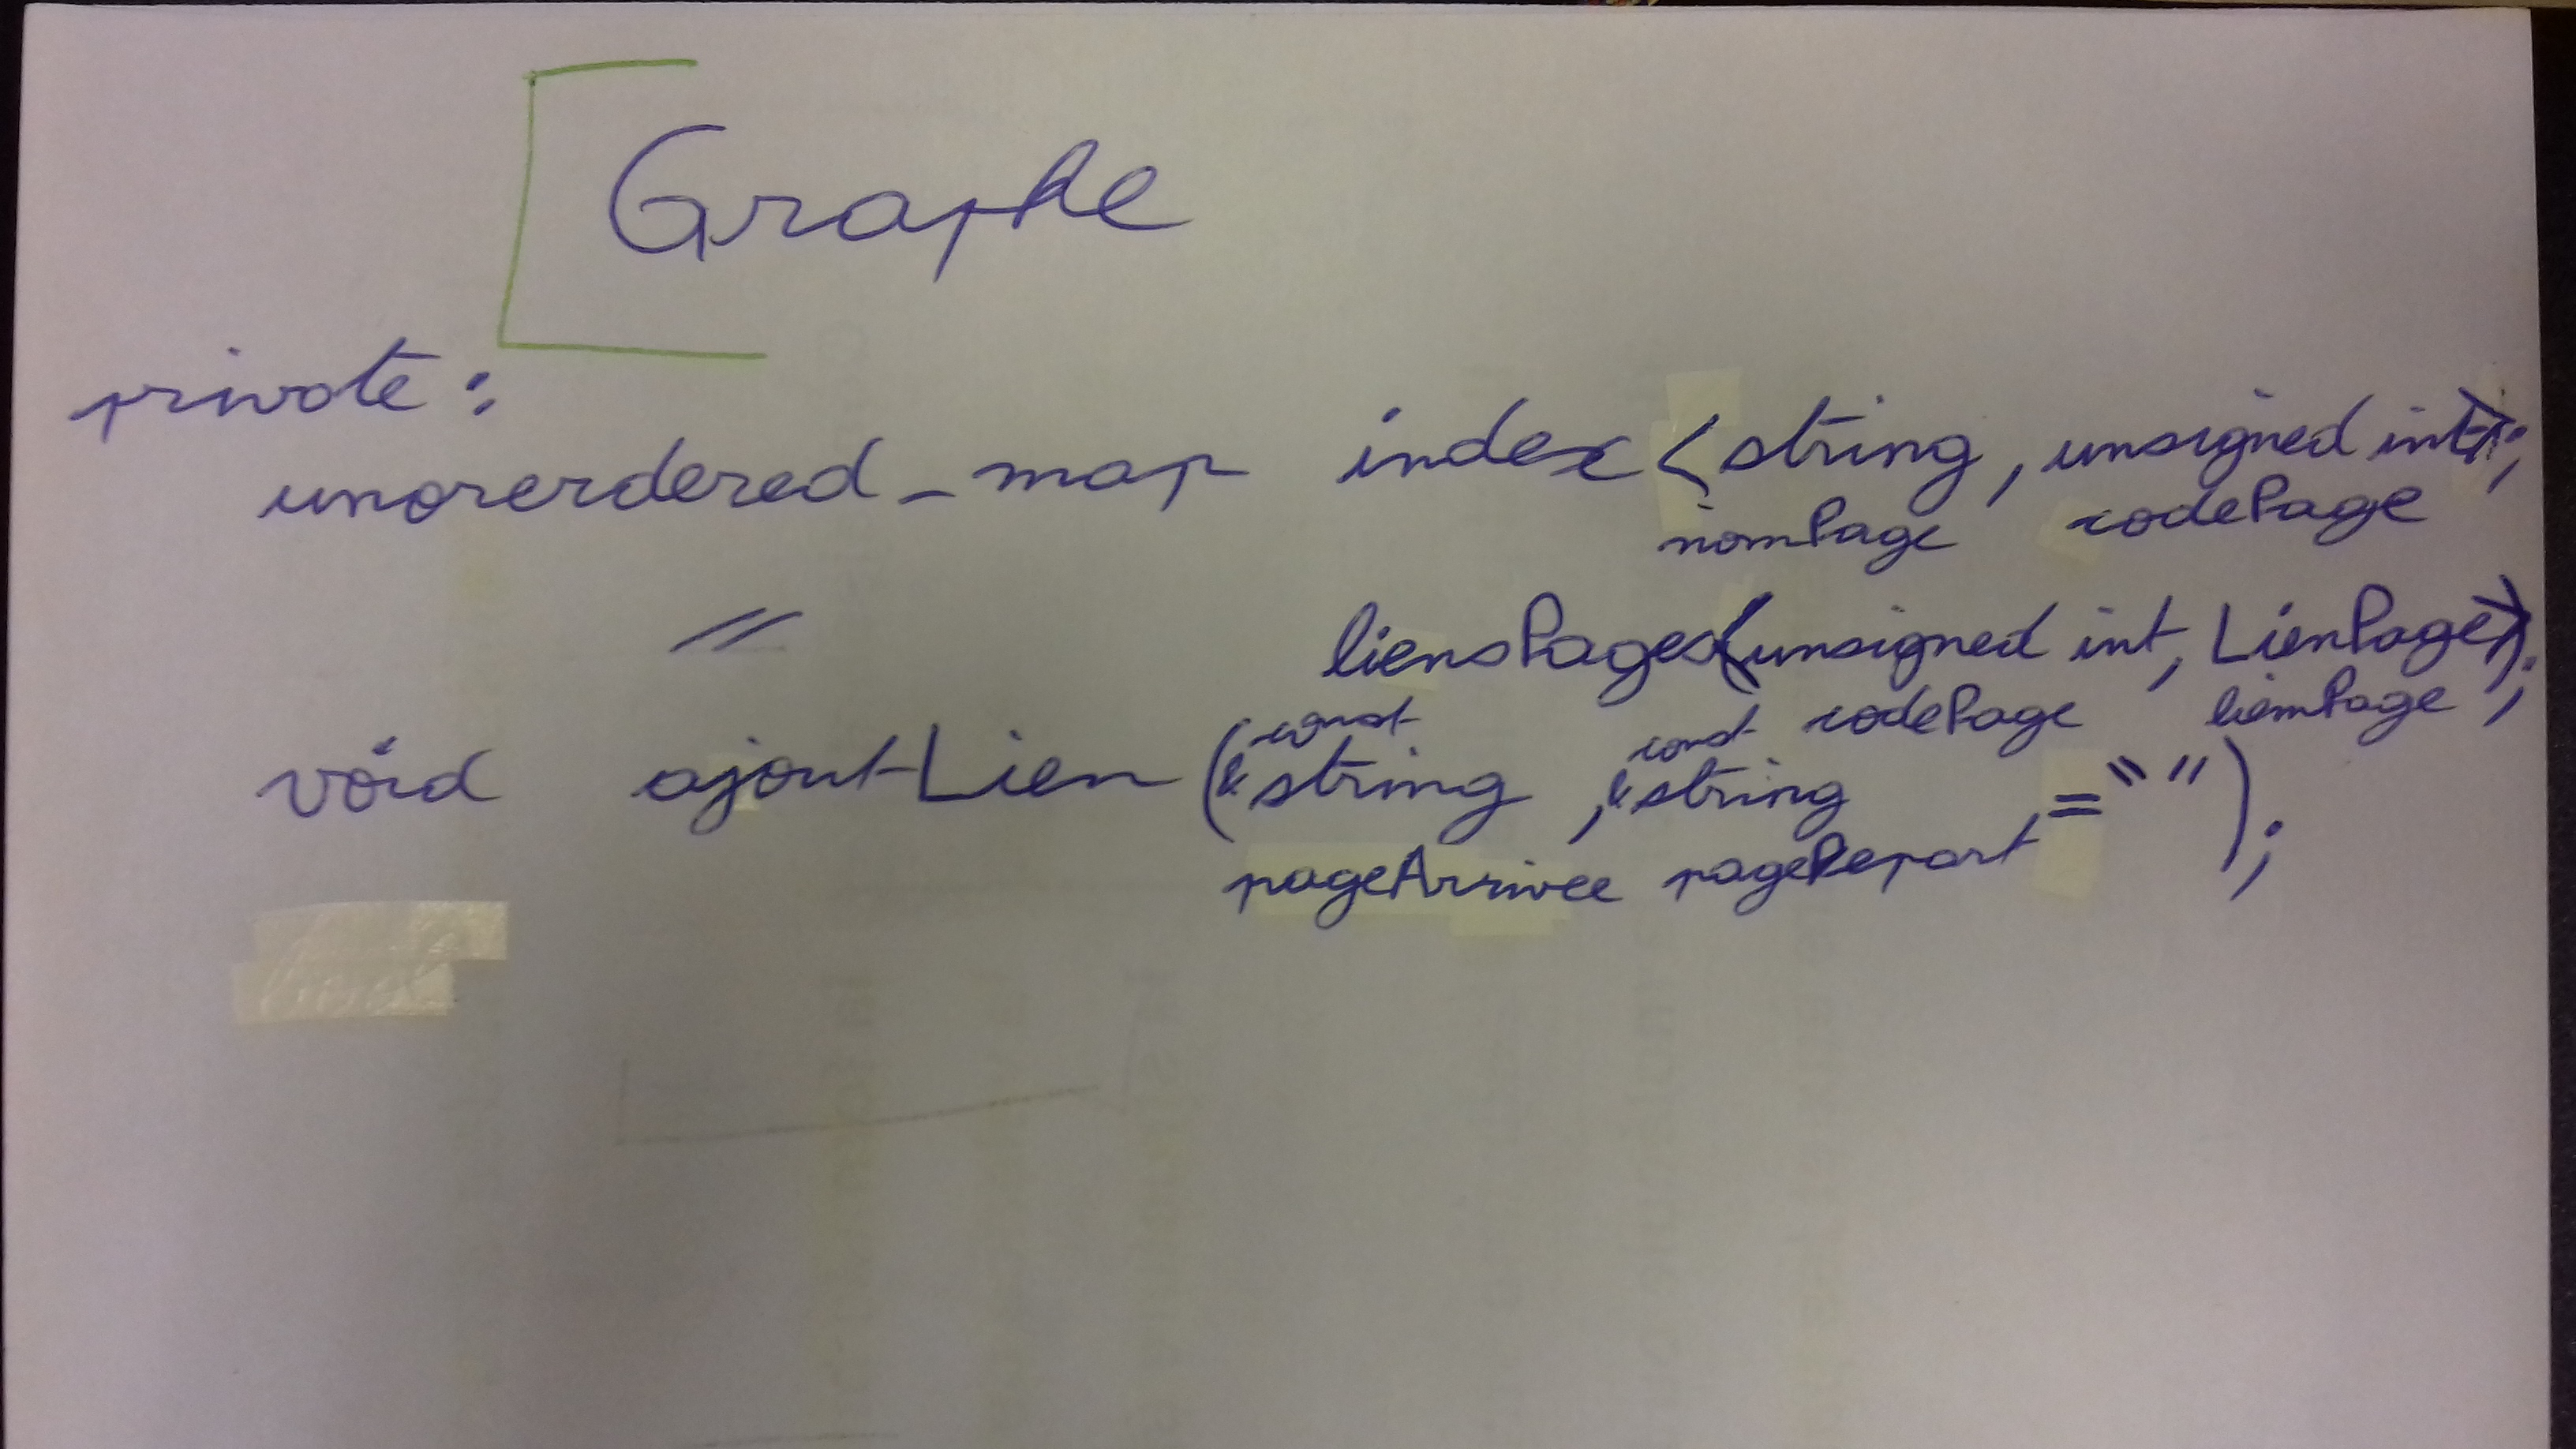 Graphe
private :
unorerdered_map index < string, unsigned int>;
nomPage codePage
// liensPages<unsigned int, LienPage>;
codePage lienPage
const const
void ajoutLien (& string , & string = " ");
pageArrivee pageDepart